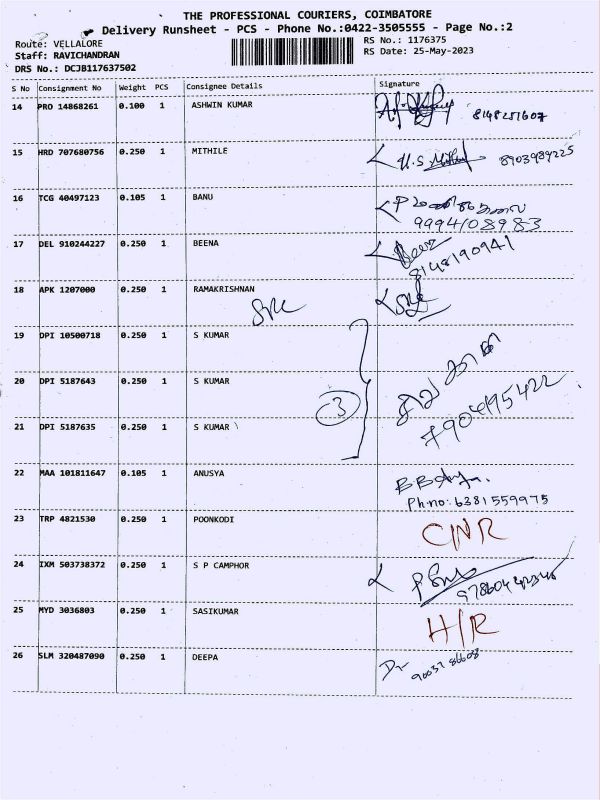 THE PROFESSIONAL COURIERS, COIMBATORE
Delivery Runsheet - PCS - Phone No.:0422-3505555 - Page No.:2
Route: VELLALORE RS No.: 1176375
Staff: RAVICHANDRAN RS Date: 25-May-2023
DRS No.: DCJB117637502
S No Consignment No Weight PCS Consignee Details Signature
14 PRO 14868261 0.100 1 ASHWIN KUMAR 8148251607
15 HRD 707680756 0.250 1 MITHILE 8903989225
16 TCG 40497123 0.105 1 BANU
9994108983
17 DEL 910244227 0.250 1 BEENA
8148190941
18 APK 1207000 0.250 1 RAMAKRISHNAN
19 DPI 10500718 0.250 1 S KUMAR
20 DPI 5187643 0.250 1 S KUMAR
3
21 DPI 5187635 0.250 1 S KUMAR
7904195422
22 MAA 101811647 0.105 1 ANUSYA
Ph no: 6381559975
23 TRP 4821530 0.250 1 POONKODI CNR
24 IXM 503738372 0.250 1 S P CAMPHOR
25 MYD 3036803 0.250 1 SASIKUMAR H/R
26 SLM 320487090 0.250 1 DEEPA